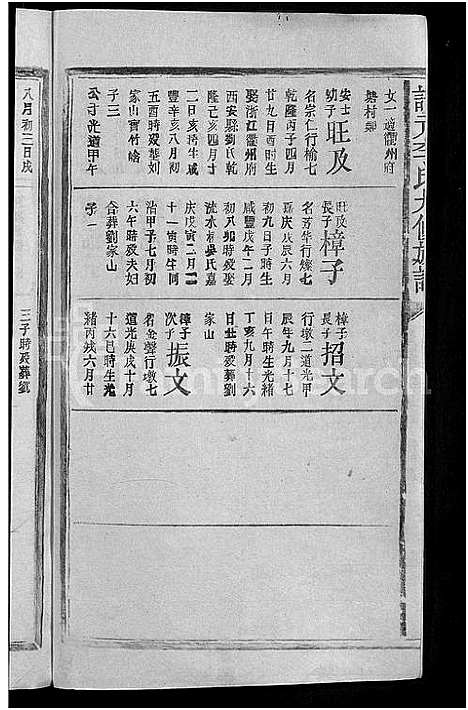 女一適衢州府
樊村鄭
安士
幼子旺及
名宗仁行榆七
乾隆丙子四月
廿九日酉時生
娶浙江衢州府
西安縣劉氏乾
隆己亥四月十
二日亥時生咸
豐辛亥八月初
五酉時歿葬劉
家山寶竹
子三
公于光道甲午
旺及
長子樟子
名芳華行燦七
嘉慶庚辰六月
初九日子時生
咸豐戊午二月
初八卯時歿娶
流水吳氏嘉
慶戊寅二月二
十一寅時生同
治甲子七月初
六午時歿夫婦
合葬劉家山
子一
樟子
長子招文
行墩二道光甲
辰年九月十七
日午時生光緒
丁亥九月十六
日丑時歿葬劉
家山
樟子
次子振文
名金聲行墩七
道光庚戌十月
十六巳時生光
緒丙戌六月廿
八月初三日戌
三子時歿葬劉